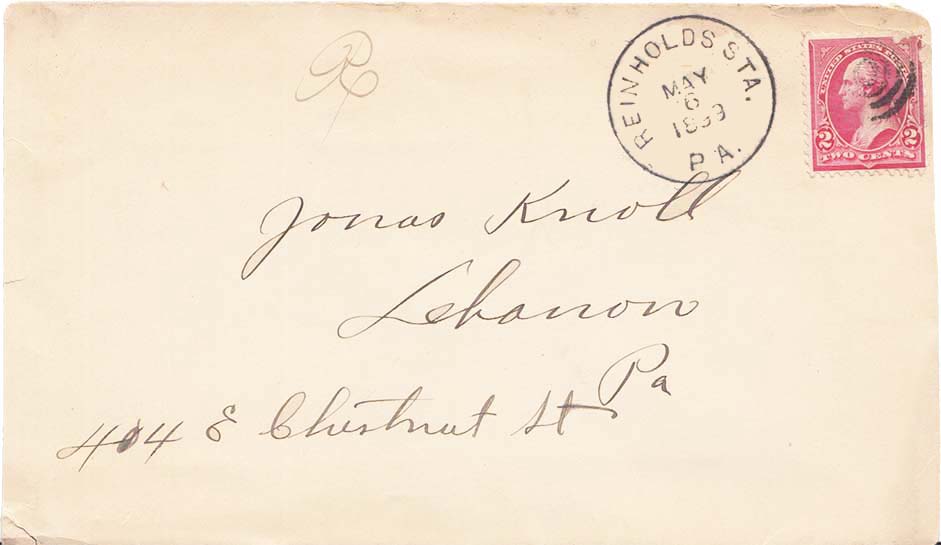 R
REINHOLDS STA.
MAY
6
1899
PA.
UNITED STATES POSTAGE
2 2
TWO CENTS
Jonas Knoll
Lebanon
Pa
404 E Chestnut St